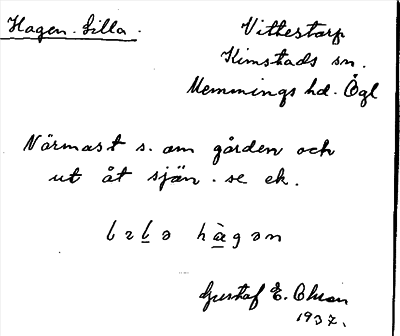 Hagen. Lilla.
Vittestorp
Kimstads sn.
Memmings hd. Ögl
Närmast s. om gården och
ut åt sjön. se ek.
lɪlə hàgən
Gustaf E. Ohson
1937.